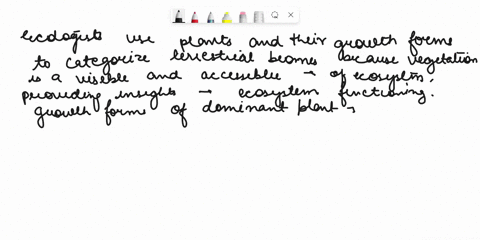 ecologists use plants and their growth forms
to categorize terrestrial biomes because vegetation
is a visible and accessible → of ecosystem
providing insights → ecosystem functioning.
growth forms of dominant plant